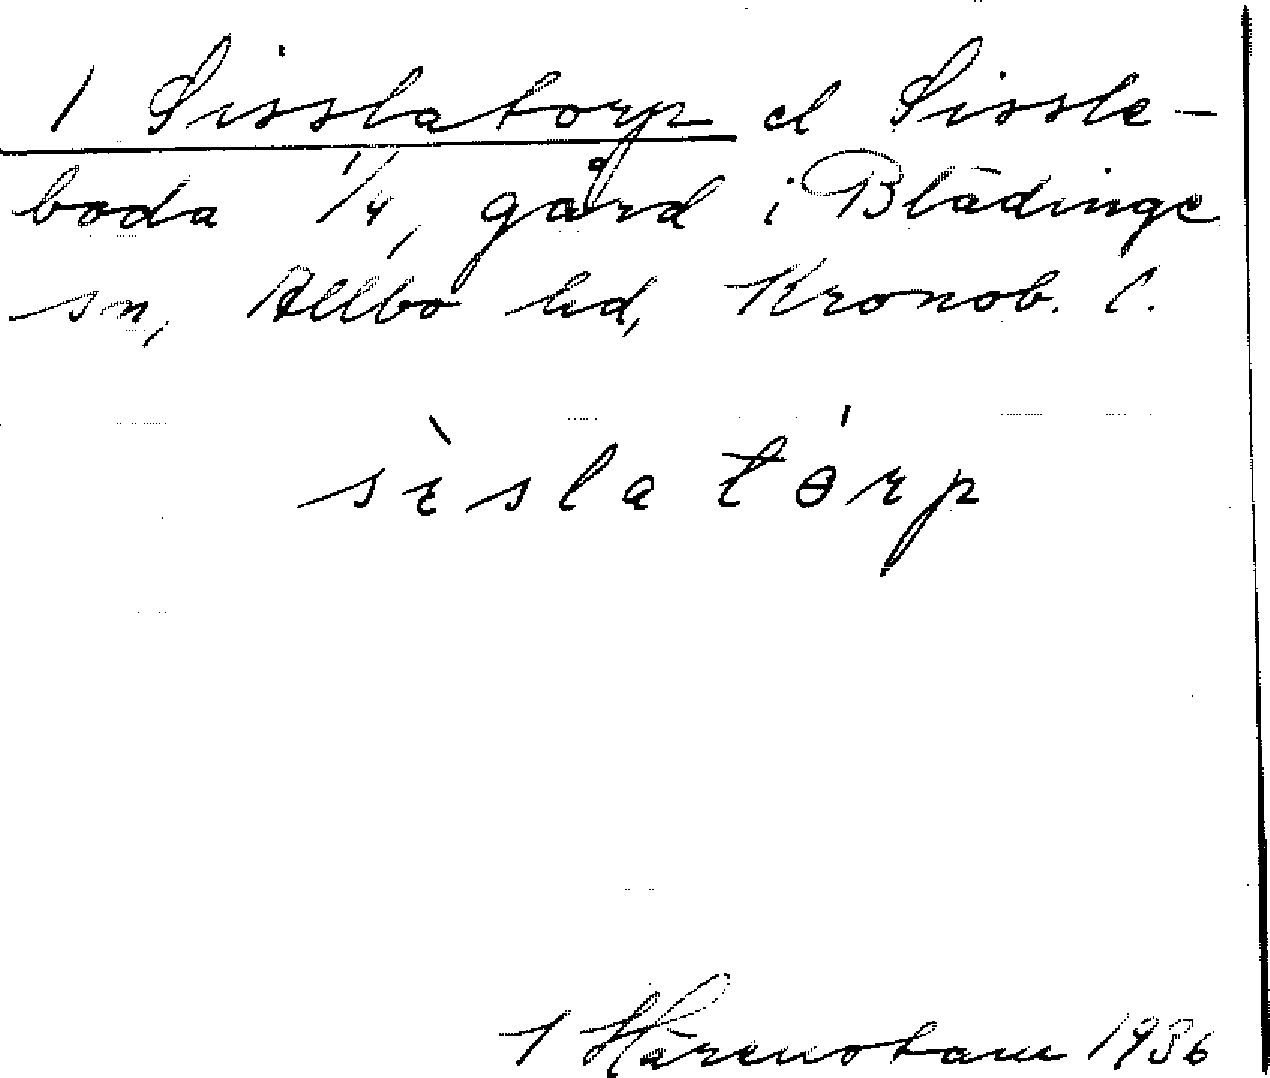 1 Sisslatorp el Sissle-
boda 1/4, gård i Blädinge
sn, Allbo hd, Kronob. l.
sìslatórp
1936